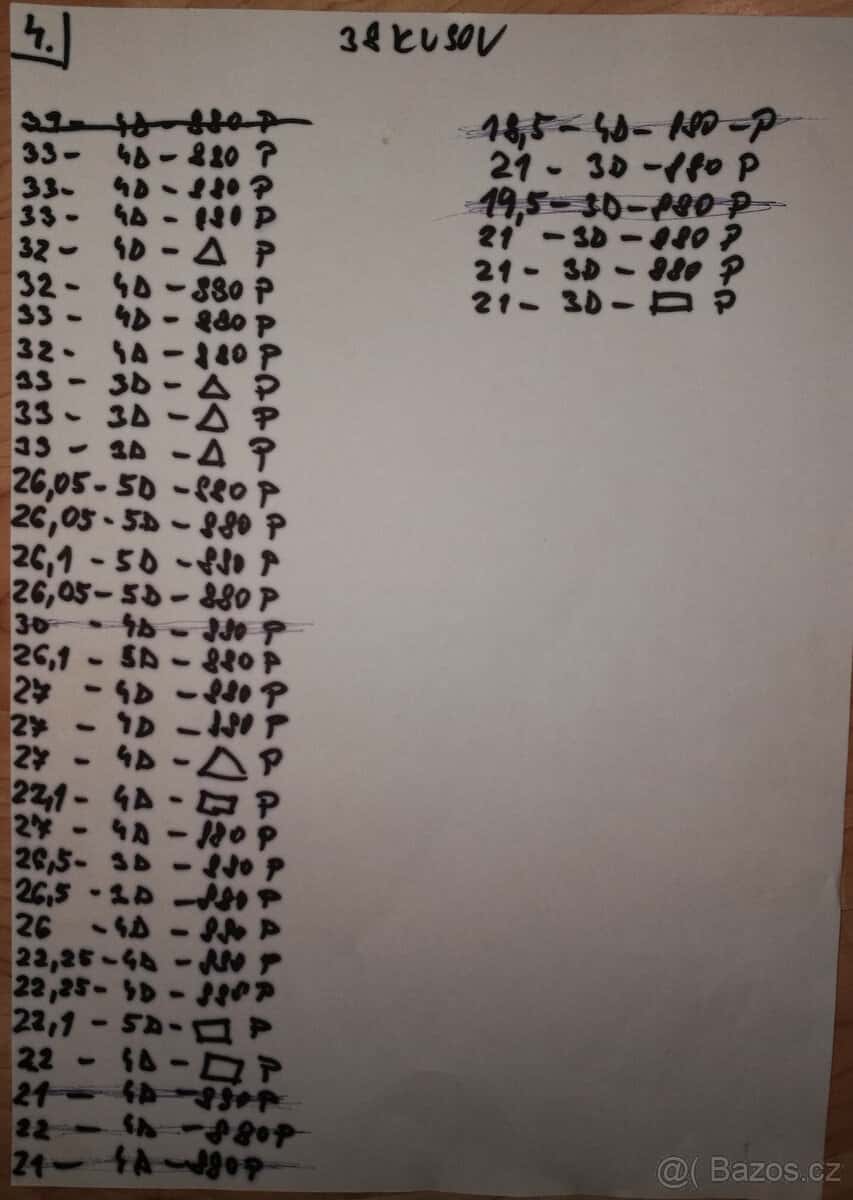 4.
38 KUSOV
33 - 4D - 880 P
33 - 4D - 880 P
33 - 4D - 880 P
33 - 4D - 880 P
32 - 4D - △ P
32 - 4D - 880 P
33 - 4D - 880 P
32 - 4D - 880 P
33 - 3D - △ P
33 - 3D - △ P
33 - 3D - △ P
26,05 - 5D - 880 P
26,05 - 5D - 880 P
26,1 - 5D - 880 P
26,05 - 5D - 880 P
30 - 4D - 880 P
26,1 - 5D - 880 P
27 - 4D - 880 P
27 - 4D - 880 P
27 - 4D - △ P
22,1 - 4D - ▭ P
27 - 4D - 880 P
26,5 - 3D - 880 P
26,5 - 3D - 880 P
26 - 4D - 880 P
22,25 - 4D - 880 P
22,25 - 4D - 880 P
22,1 - 5D - ▭ P
22 - 4D - ▭ P
21 - 4D - 880 P
22 - 4D - 880 P
21 - 4D - 880 P
18,5 - 4D - 880 - P
21 - 3D - 880 P
19,5 - 3D - 880 P
21 - 3D - 880 P
21 - 3D - 880 P
21 - 3D - ▭ P
@( Bazos.cz